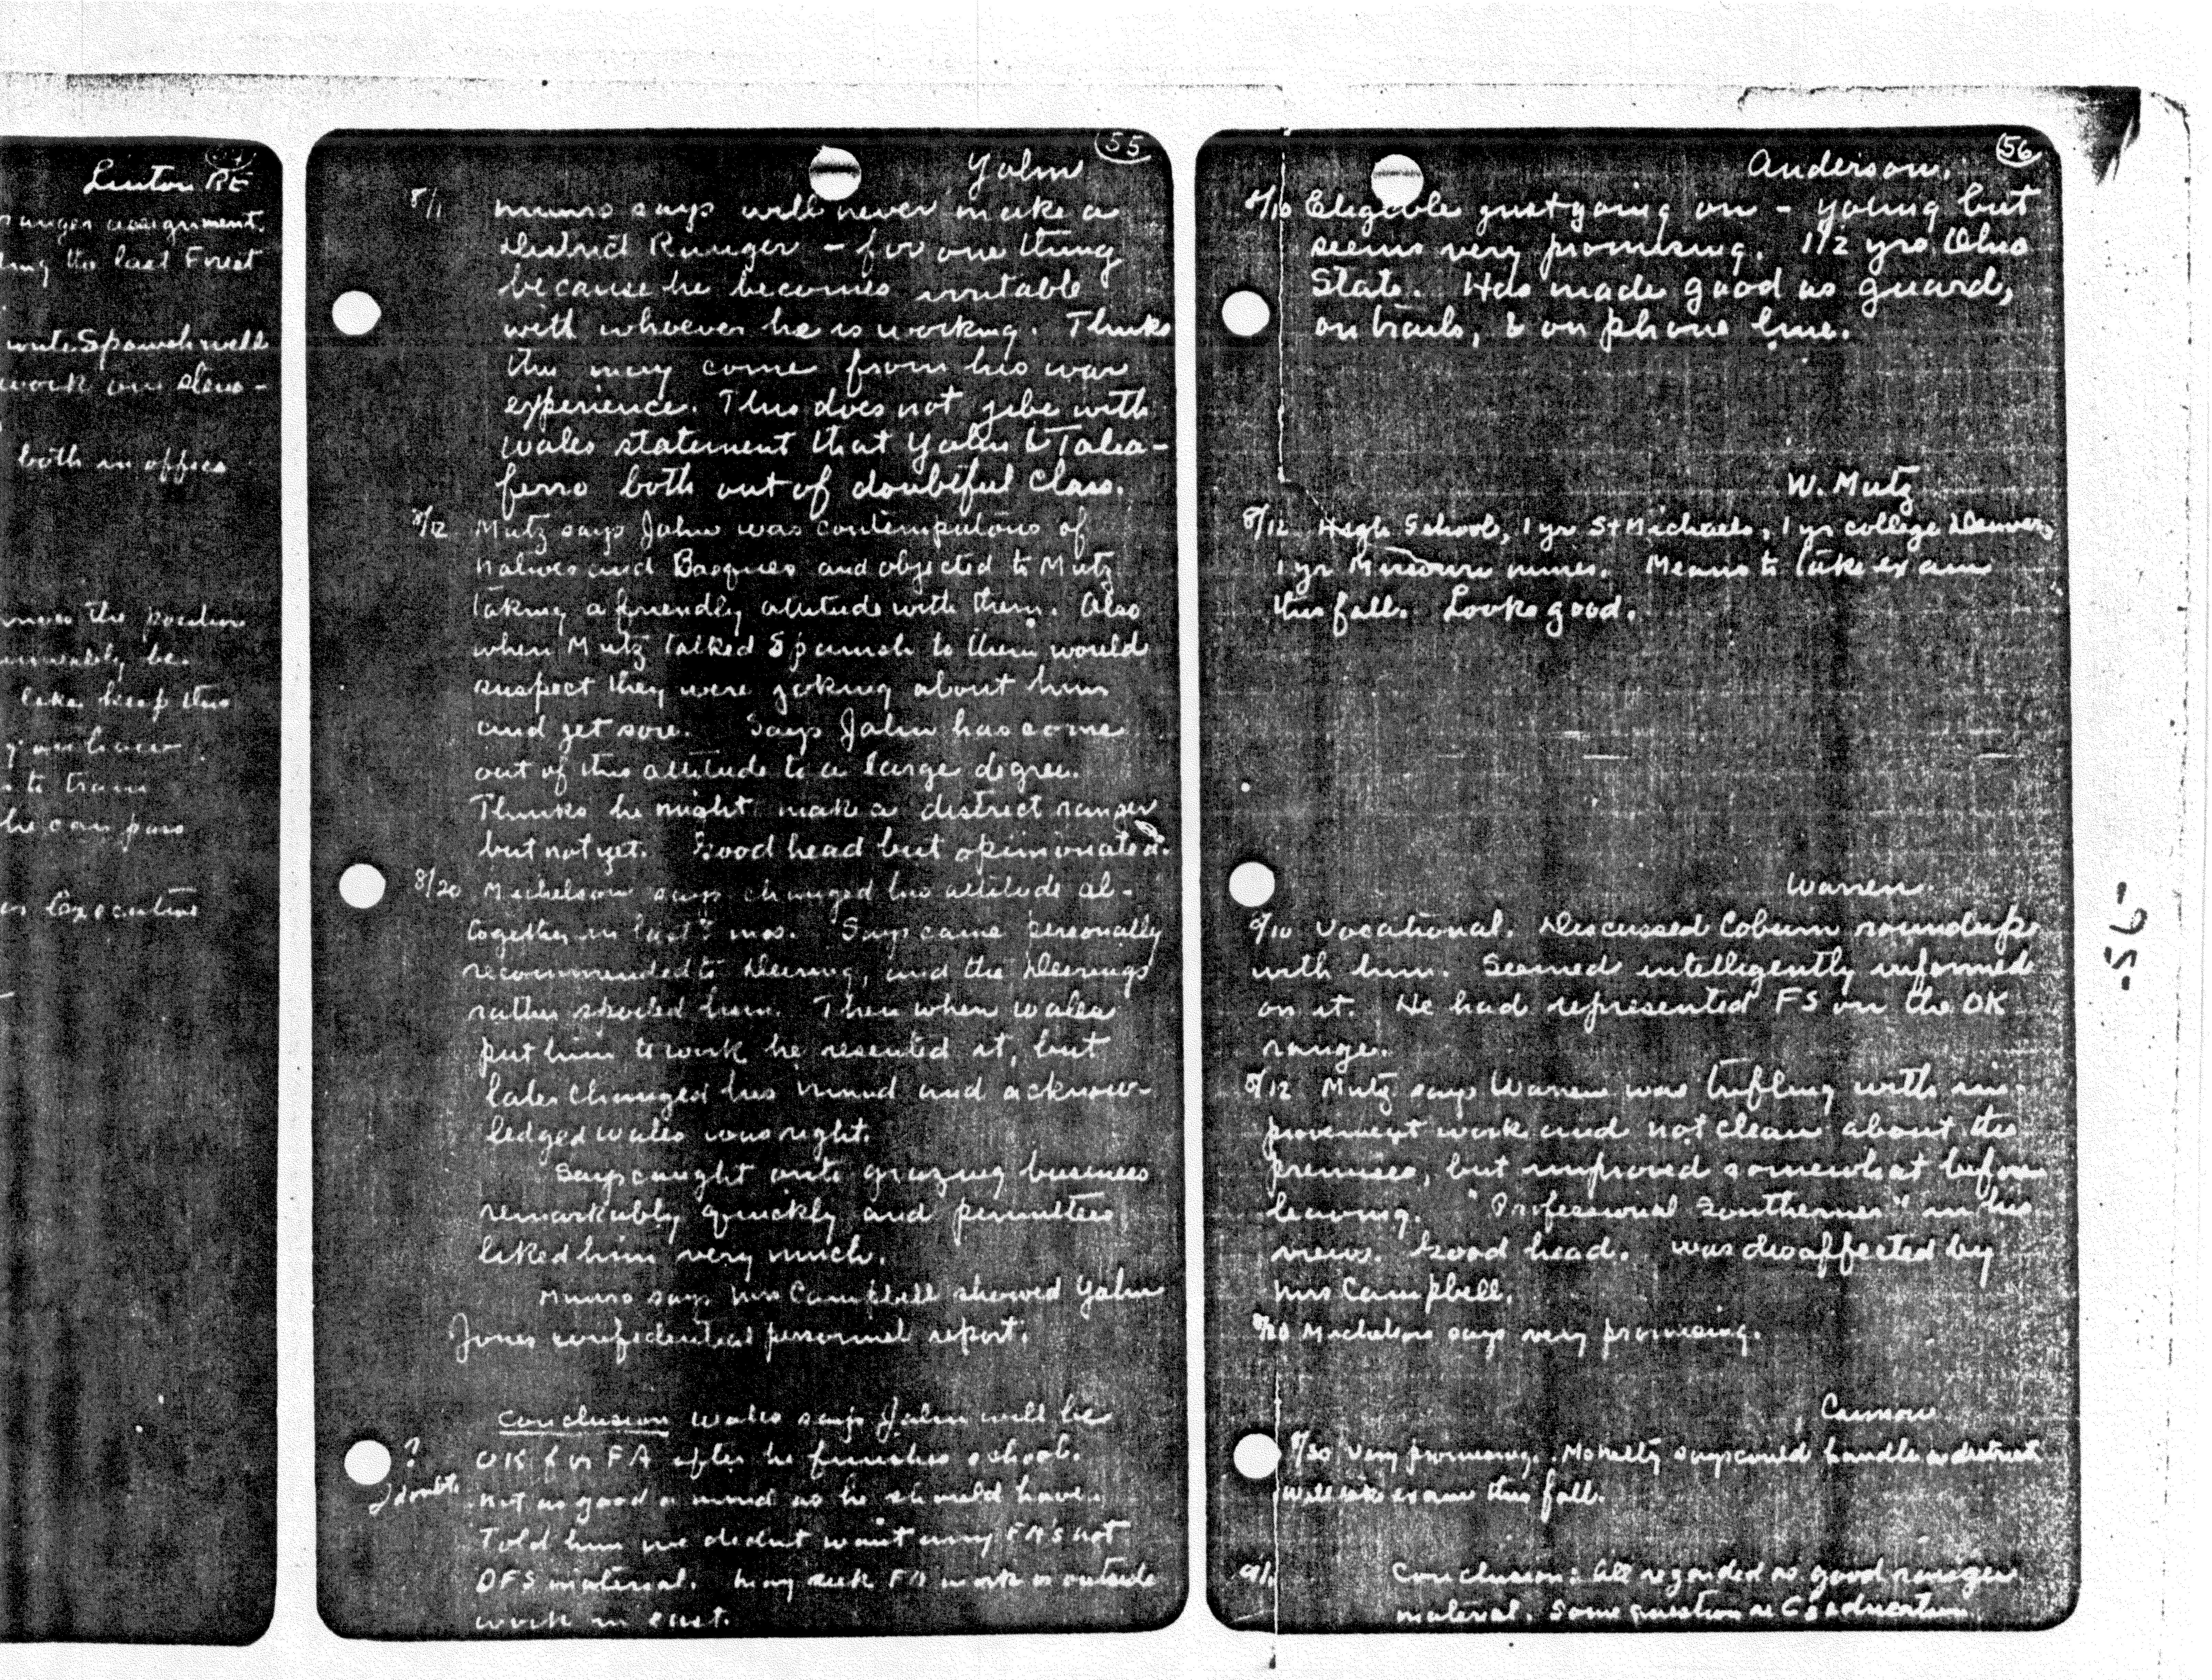 Linton RE
ranger assignment.
the last Forest
write Spanish well
work on
both in office
the position
be
like keep this
you have
to train
he can pass
as Executive
55
Yalm
8/1 Munro says will never make a
District Ranger - for one thing
because he becomes irritable
with whoever he is working. Thinks
this may come from his war
experience. This does not jibe with
Wales statement that Yalm & Talia-
ferro both out of doubtful class.
8/12 Mutz says Jalm was contemptuous of
natives and Basques and objected to Mutz
taking a friendly attitude with them. Also
when Mutz talked Spanish to them would
suspect they were joking about him
and get sore. Says Jalm has come
out of this attitude to a large degree.
Thinks he might make a district ranger
but not yet. Good head but opinionated.
8/20 Michelson says changed his attitude al-
together in last mos. Says came personally
recommended to Deering, and the Deerings
rather spoiled him. Then when Wales
put him to work he resented it, but
later changed his mind and acknow-
ledged Wales was right.
Says caught onto grazing business
remarkably quickly and permittees
liked him very much.
Munro says Mrs Campbell showed Yalm
Jones confidential personnel report.
Conclusion Wales says Jalm will be
? OK for FA after he finishes school.
I doubt. Not as good a mind as he should have.
Told him we didnt want any FA's not
DFS material. May seek FA work or outside
work in east.
56
Anderson.
8/10 Eligible just going on - young but
seems very promising. 1 1/2 yrs Ohio
State. Has made good as guard,
on trails, & on phone line.
W. Mutz
8/12 High School, 1 yr St Michaels, 1 yr college Denver,
1 yr Missouri mines. Means to take exam
this fall. Looks good.
Warren.
8/10 Vocational. Discussed Coburn roundups
with him. Seemed intelligently informed
on it. He had represented FS on the OK
range.
8/12 Mutz says Warren was trifling with im-
provement work and not clean about the
premises, but improved somewhat before
leaving. "Professional Southerner" in his
view. Good head. Was disaffected by
Mrs Campbell.
8/20 Michelson says very promising.
8/30 Very promising. McNelty says could handle a district
Will take exam this fall.
9/1 Conclusion: All regarded as good ranger
material. Some question re Cs education.
-56-